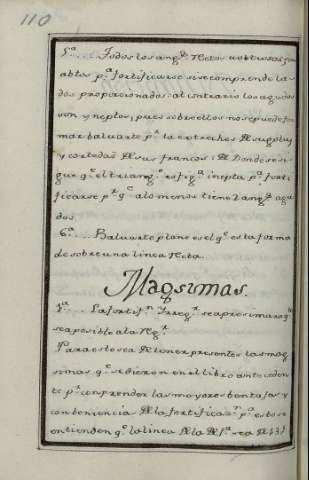 110
5ª.... Todos los angs. Rectos u obtusos son
ablos pª. fortificarse si se comprende la
dos proporcionados al contrario los agudos
son yneptos, pues sobre ellos no se puede for
mar baluarte pr. la estreches de sus plas
y cortedad de sus francos: de Donde se si
gue qe. el triango. es figª. inepta pª. forti
ficarse pr. qe. alo menos tiene 2 angs. agu
dos
6ª.... Baluarte plano es el qe. esta forma
do sobre una linea Recta.
Magsimas.
1ª. La fortifn. Irregr. se aproximara qto.
sea posible a la Regr.
Para esto sea de tener presentes las mag
simas qe. se dieron en el libro antecedente
pr. comprender las mayores bentajas y
conbeniencia de la fortificazn. pª. esto se
entienden qe. la linea de la Dfª. sea de